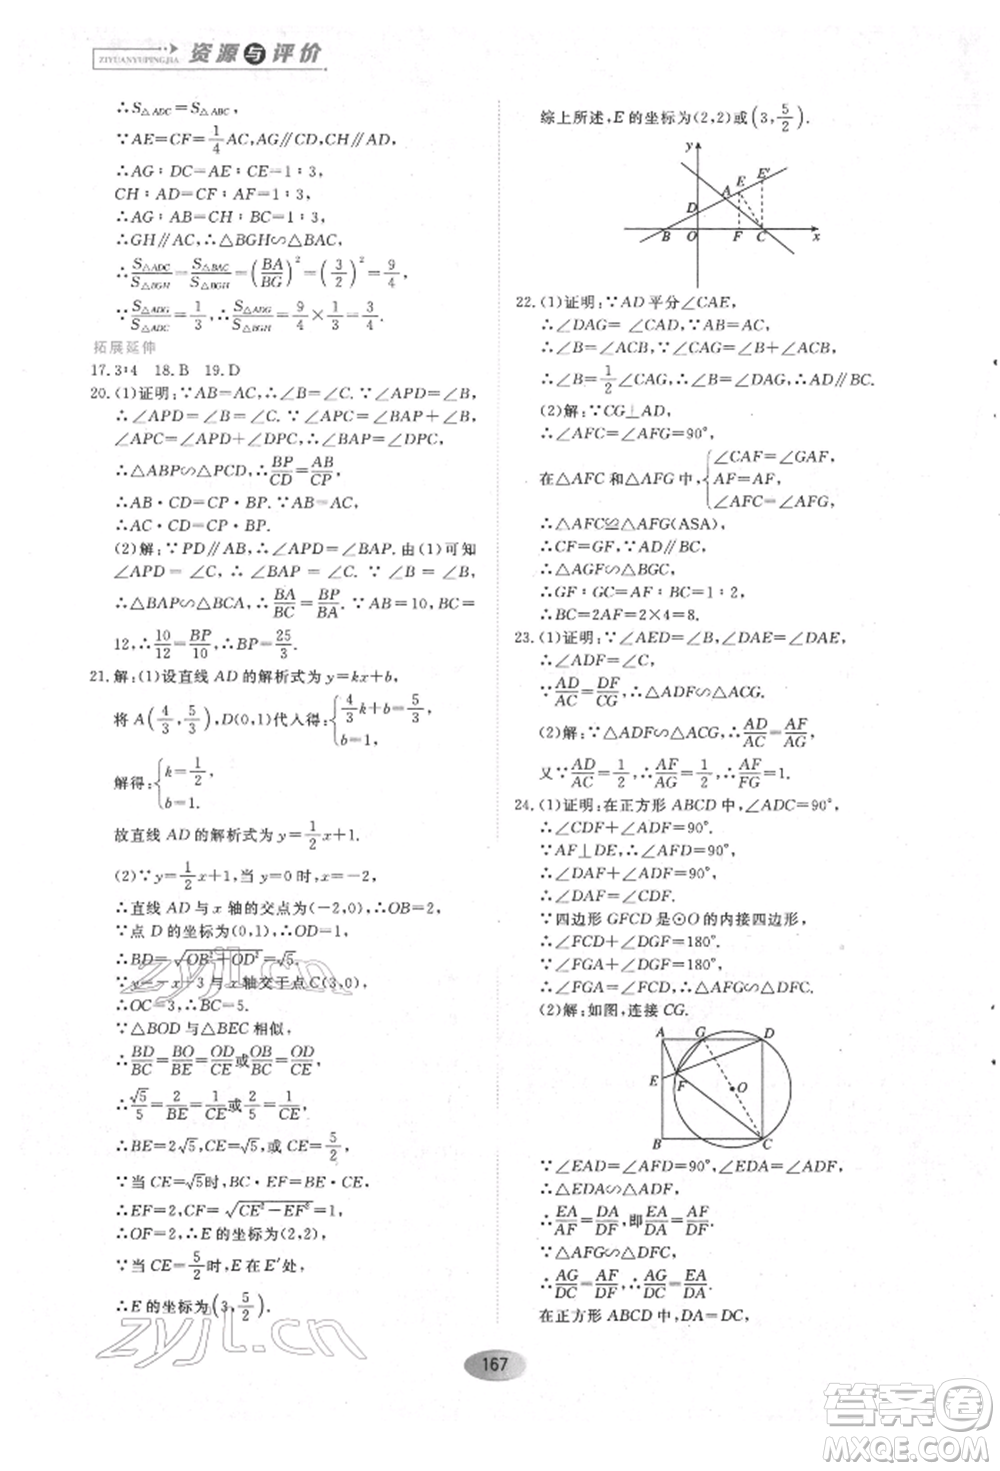 ZIYUANYUPINGJIA 资源与评价
∴S△ADC=S△ABC,
∵AE=CF=1/4AC,AG∥CD,CH∥AD,
∴AG∶DC=AE∶CE=1∶3,
CH∶AD=CF∶AF=1∶3,
∴AG∶AB=CH∶BC=1∶3,
∴GH∥AC,∴△BGH∽△BAC,
∴S△ADC/S△BGH=S△BAC/S△BGH=(BA/BG)²=(3/2)²=9/4,
∵S△ADG/S△ADC=1/3,∴S△ADG/S△BGH=9/4×1/3=3/4.
拓展延伸
17.3∶4 18.B 19.D
20.(1)证明:∵AB=AC,∴∠B=∠C.∵∠APD=∠B,
∴∠APD=∠B=∠C.∵∠APC=∠BAP+∠B,
∠APC=∠APD+∠DPC,∴∠BAP=∠DPC,
∴△ABP∽△PCD,∴BP/CD=AB/CP,
∴AB·CD=CP·BP.∵AB=AC,
∴AC·CD=CP·BP.
(2)解:∵PD∥AB,∴∠APD=∠BAP.由(1)可知
∠APD=∠C,∴∠BAP=∠C.∵∠B=∠B,
∴△BAP∽△BCA,∴BA/BC=BP/BA.∵AB=10,BC=
12,∴10/12=BP/10,∴BP=25/3.
21.解:(1)设直线AD的解析式为y=kx+b,
将A(4/3,5/3),D(0,1)代入得:{4/3k+b=5/3, b=1,
解得:{k=1/2, b=1.
故直线AD的解析式为y=1/2x+1.
(2)∵y=1/2x+1,当y=0时,x=-2,
∴直线AD与x轴的交点为(-2,0),∴OB=2,
∵点D的坐标为(0,1),∴OD=1,
∴BD=√OB²+OD²=√5.
∵y=-x+3与x轴交于点C(3,0),
∴OC=3,∴BC=5.
∵△BOD与△BEC相似,
∴BD/BC=BO/BE=OD/CE或OB/BC=OD/CE,
∴√5/5=2/BE=1/CE或2/5=1/CE,
∴BE=2√5,CE=√5,或CE=5/2,
∵当CE=√5时,BC·EF=BE·CE,
∴EF=2,CF=√CE²-EF²=1,
∴OF=2,∴E的坐标为(2,2);
∵当CE=5/2时,E在E′处,
∴E的坐标为(3,5/2).
综上所述,E的坐标为(2,2)或(3,5/2).
y
A E E′
D
B O F C x
22.(1)证明:∵AD平分∠CAE,
∴∠DAG=∠CAD,∵AB=AC,
∴∠B=∠ACB,∵∠CAE=∠B+∠ACB,
∴∠B=1/2∠CAE,∴∠B=∠DAG,
∴AD∥BC.
(2)解:∵CG⊥AD,
∴∠AFC=∠AFG=90°,
在△AFC和△AFG中,{∠CAF=∠GAF, AF=AF, ∠AFC=∠AFG,
∴△AFC≌△AFG(ASA),
∴CF=GF,∵AD∥BC,
∴△AGF∽△BGC,
∴GF∶GC=AF∶BC=1∶2,
∴BC=2AF=2×4=8.
23.(1)证明:∵∠AED=∠B,∠DAE=∠DAE,
∴∠ADF=∠C,
∵AD/AC=DF/CG,∴△ADF∽△ACG.
(2)解:∵△ADF∽△ACG,∴AD/AC=AF/AG,
又∵AD/AC=1/2,∴AF/AG=1/2,∴AF/FG=1.
24.(1)证明:在正方形ABCD中,∠ADC=90°,
∴∠CDF+∠ADF=90°.
∵AF⊥DE,∴∠AFD=90°,
∴∠DAF+∠ADF=90°,
∴∠DAF=∠CDF.
∵四边形GFCD是⊙O的内接四边形,
∴∠FCD+∠DGF=180°,
∵∠FGA+∠DGF=180°,
∴∠FGA=∠FCD,∴△AFG∽△DFC.
(2)解:如图,连接CG.
A G D
E F O
B C
∵∠EAD=∠AFD=90°,∠EDA=∠ADF,
∴△EDA∽△ADF,
∴EA/AF=DA/DF,即EA/DA=AF/DF.
∵△AFG∽△DFC,
∴AG/DC=AF/DF,∴AG/DC=EA/DA,
在正方形ABCD中,DA=DC,
167
zyjl.cn
zyjl.cn
答案圈
MXQE.COM